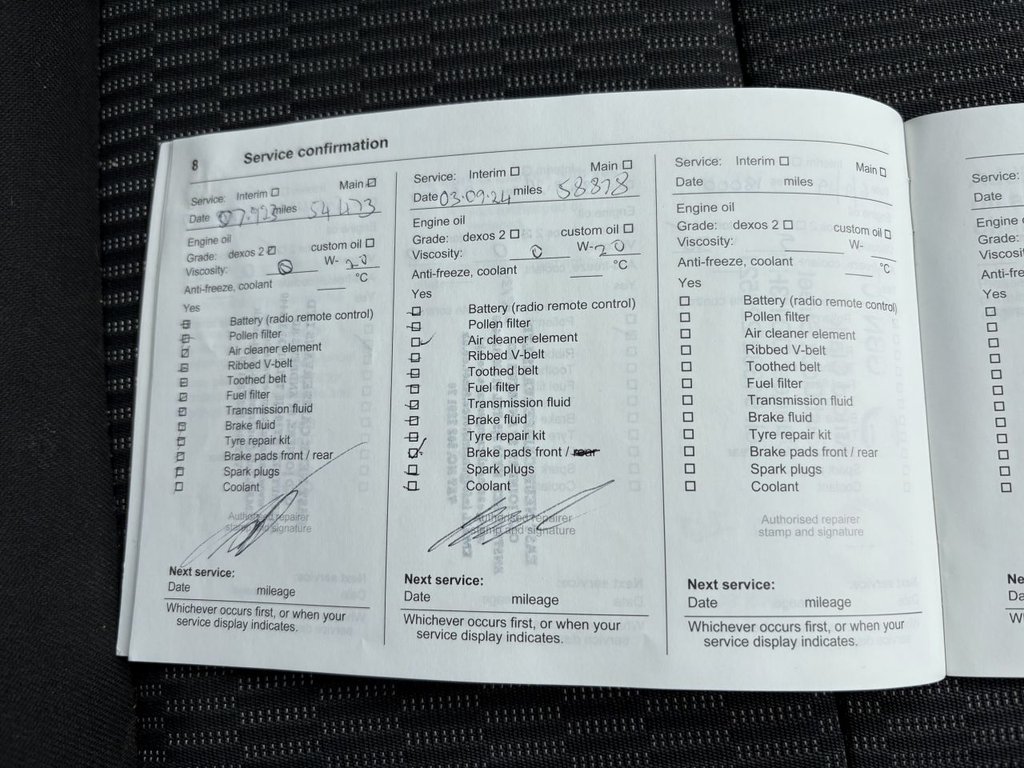 8 Service confirmation
Service: Interim Main
Date 07. miles 54473
Engine oil
Grade: dexos 2 custom oil
Viscosity: 0 W- 20
Anti-freeze, coolant °C
Yes
Battery (radio remote control)
Pollen filter
Air cleaner element
Ribbed V-belt
Toothed belt
Fuel filter
Transmission fluid
Brake fluid
Tyre repair kit
Brake pads front / rear
Spark plugs
Coolant
Authorised repairer
stamp and signature
Next service:
Date mileage
Whichever occurs first, or when your
service display indicates.
Service: Interim Main
Date 03.09.24 miles 58828
Engine oil
Grade: dexos 2 custom oil
Viscosity: 0 W- 20
Anti-freeze, coolant °C
Yes
Battery (radio remote control)
Pollen filter
Air cleaner element
Ribbed V-belt
Toothed belt
Fuel filter
Transmission fluid
Brake fluid
Tyre repair kit
Brake pads front / rear
Spark plugs
Coolant
Authorised repairer
stamp and signature
Next service:
Date mileage
Whichever occurs first, or when your
service display indicates.
Service: Interim Main
Date miles
Engine oil
Grade: dexos 2 custom oil
Viscosity: W-
Anti-freeze, coolant °C
Yes
Battery (radio remote control)
Pollen filter
Air cleaner element
Ribbed V-belt
Toothed belt
Fuel filter
Transmission fluid
Brake fluid
Tyre repair kit
Brake pads front / rear
Spark plugs
Coolant
Authorised repairer
stamp and signature
Next service:
Date mileage
Whichever occurs first, or when your
service display indicates.
Service:
Date
Engine
Grade:
Viscosity:
Yes